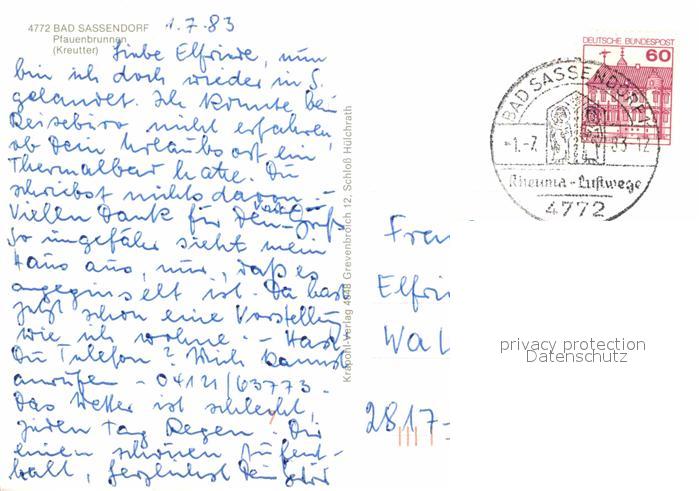 4772 BAD SASSENDORF
Pfauenbrunnen
(Kreutter)
1.7.83
Liebe Elfriede, nun
bin ich doch wieder in S.
gelandet. Ich konnte beim
Reisebüro nicht erfahren,
ob Dein Urlaubsort ein
Thermalbad hatte. Du
schriebst nichts davon. -
Vielen Dank für Deinen Gruß
So ungefähr sieht mein
Haus aus, nur, daß es
es eingeinselt ist. Du hast
jetzt schon eine Vorstellung
wie ich wohne. - Hast
Du Telefon? Mich kannst
anrufen - 04121/63773.
Das Wetter ist schlecht,
jeden Tag Regen. Dir
einen schönen Aufent-
halt, herzlichst Dein
Krapohl-Verlag 4048 Grevenbroich 12, Schloß Hülchrath
DEUTSCHE BUNDESPOST
60
BAD SASSENDORF
-1.-7. 83-12
Rheuma-Luftwege
4772
Frau
Elfri
Wal
2817-
privacy protection
Datenschutz